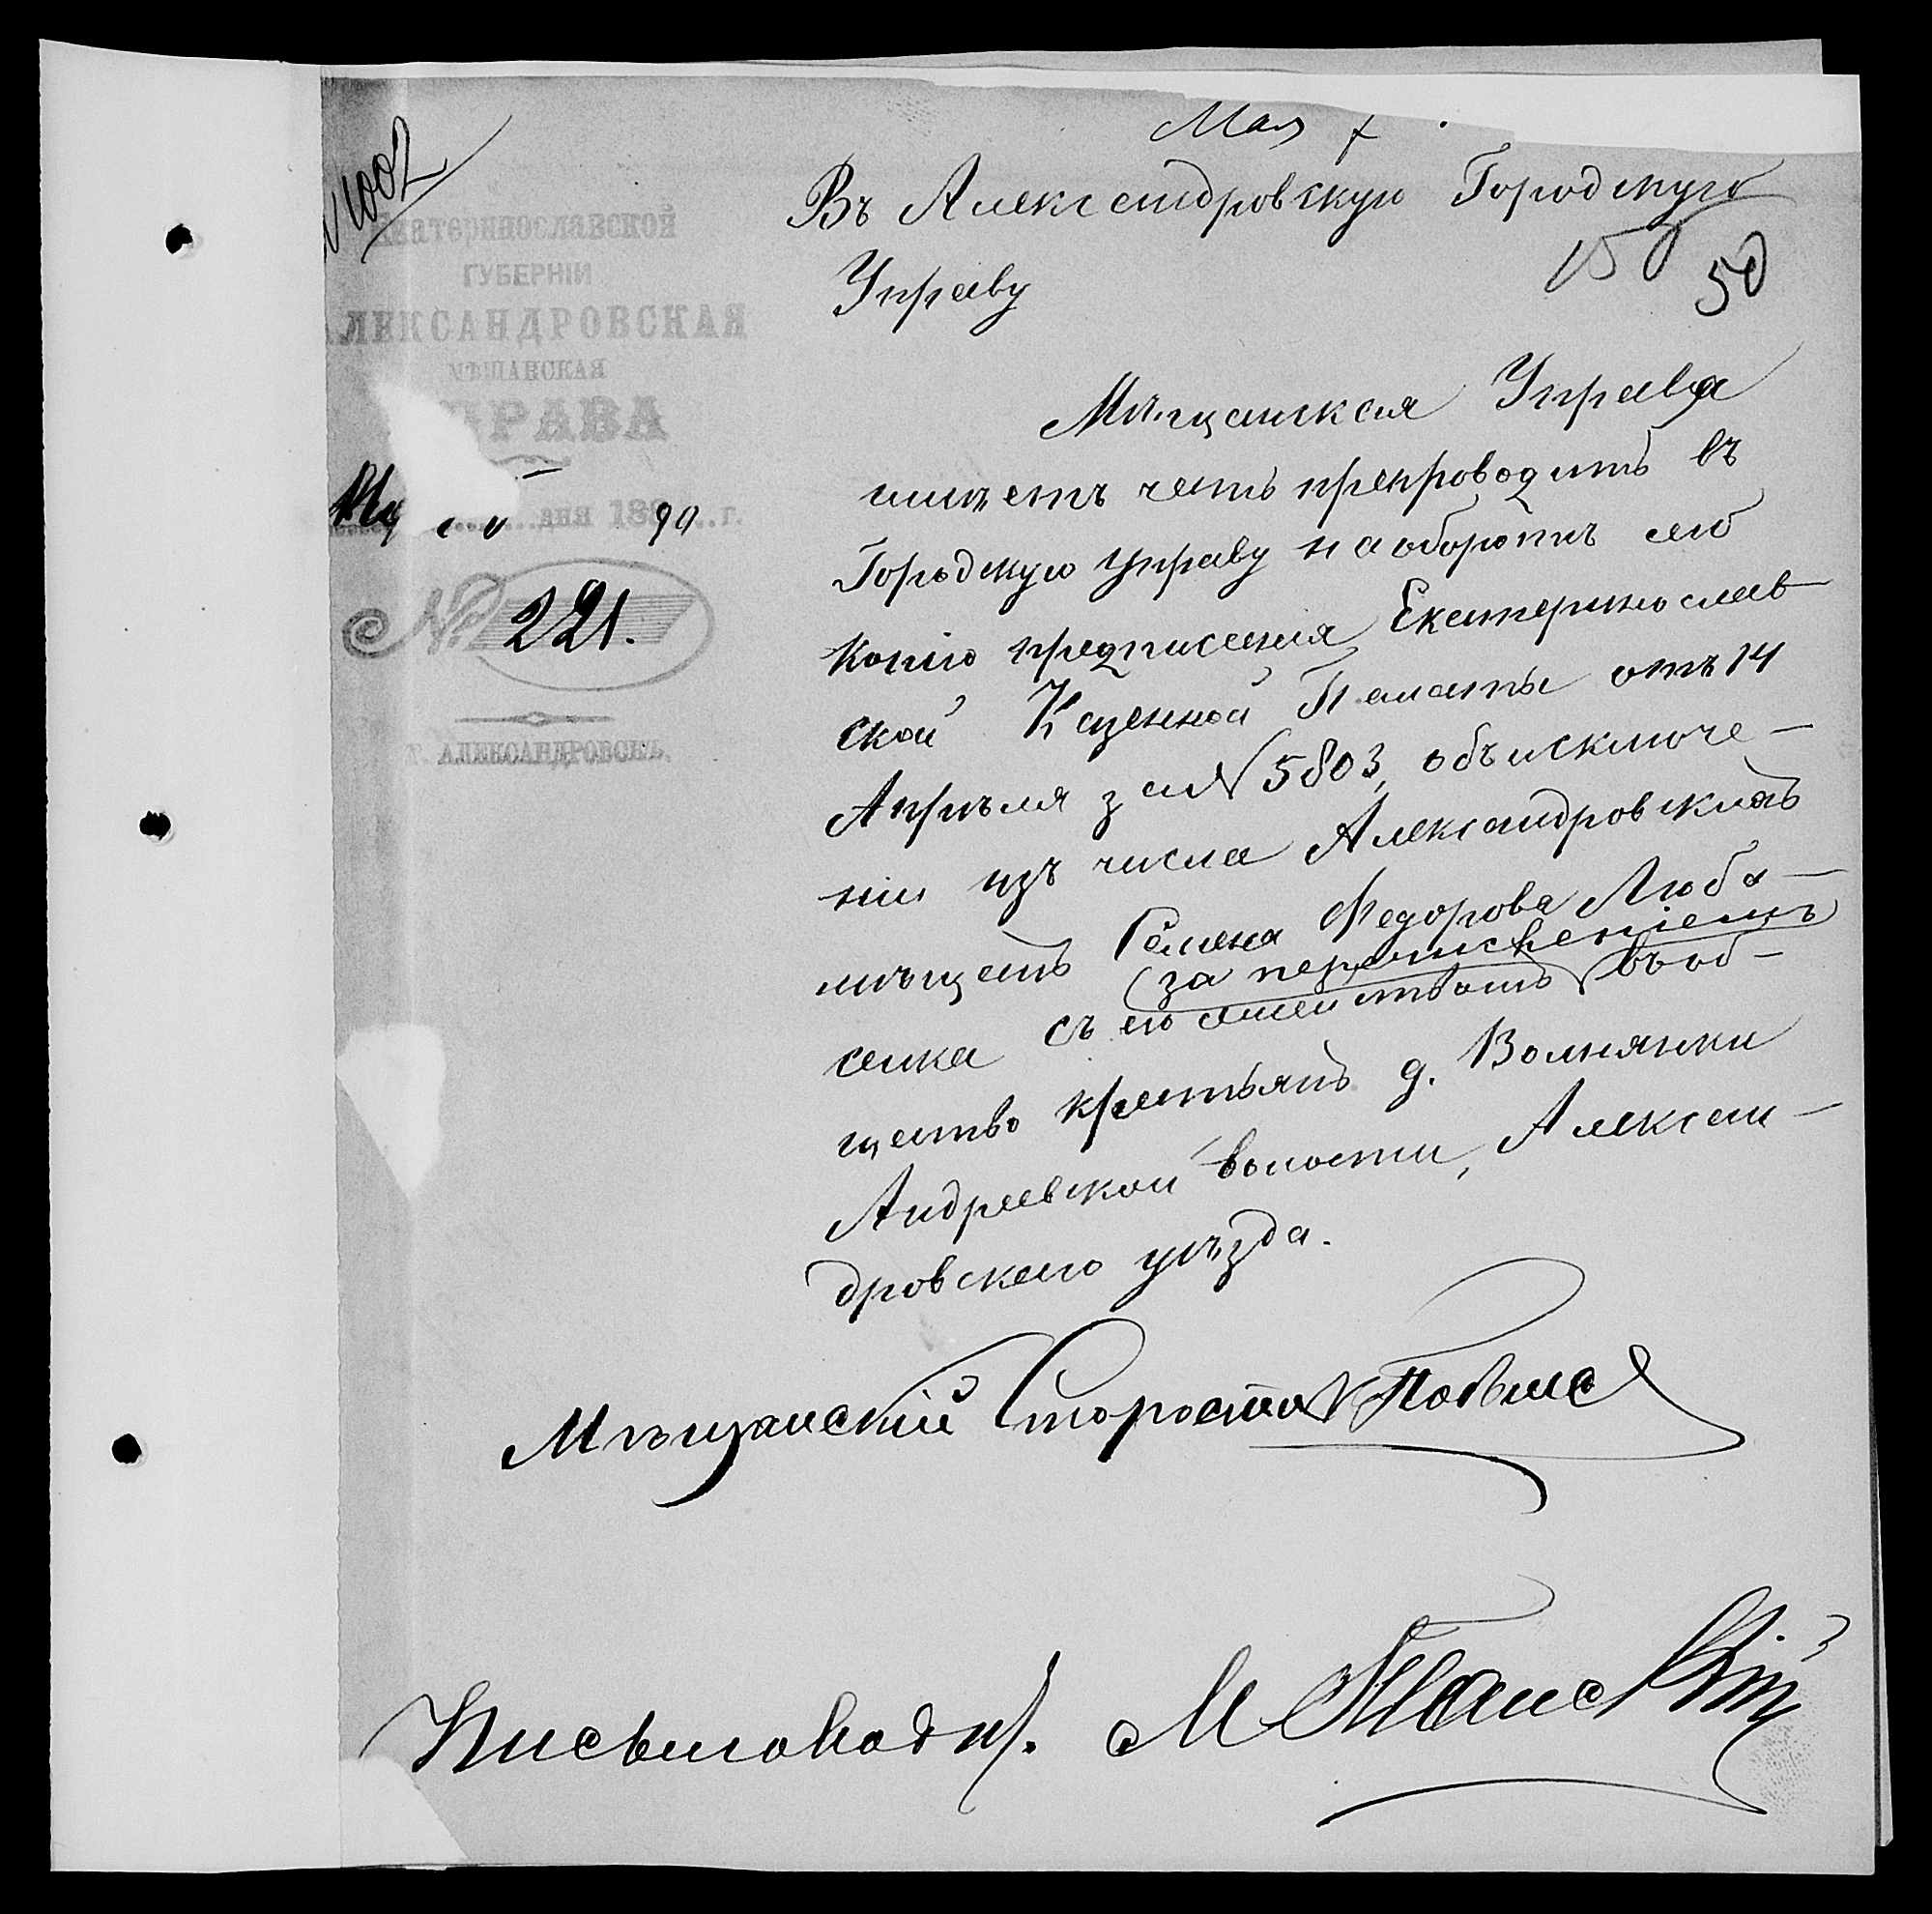 Мая 7
№ 1002
Екатеринославской
ГУБЕРНІИ
АЛЕКСАНДРОВСКАЯ
МѢЩАНСКАЯ
УПРАВА
дня 188 90 г.
№ 221.
Г. АЛЕКСАНДРОВСКЪ.
Въ Александровскую Городскую
Управу
50
Мѣщанская Управа
имѣетъ честь препроводить въ
Городскую Управу на оборотѣ сего
копію предписанія Екатеринослав
ской Казенной Палаты отъ 14
Апрѣля за № 5803, объ исключе-
ніи изъ числа Александровскихъ
мѣщанъ Семена Федорова Люба-
(за перечисленіемъ)
сика съ его семействомъ въ об-
щество крестьянъ д. Волнянки
Андреевской волости, Алексан-
дровскаго уѣзда.
Мѣщанскій Староста
Письмоводит.